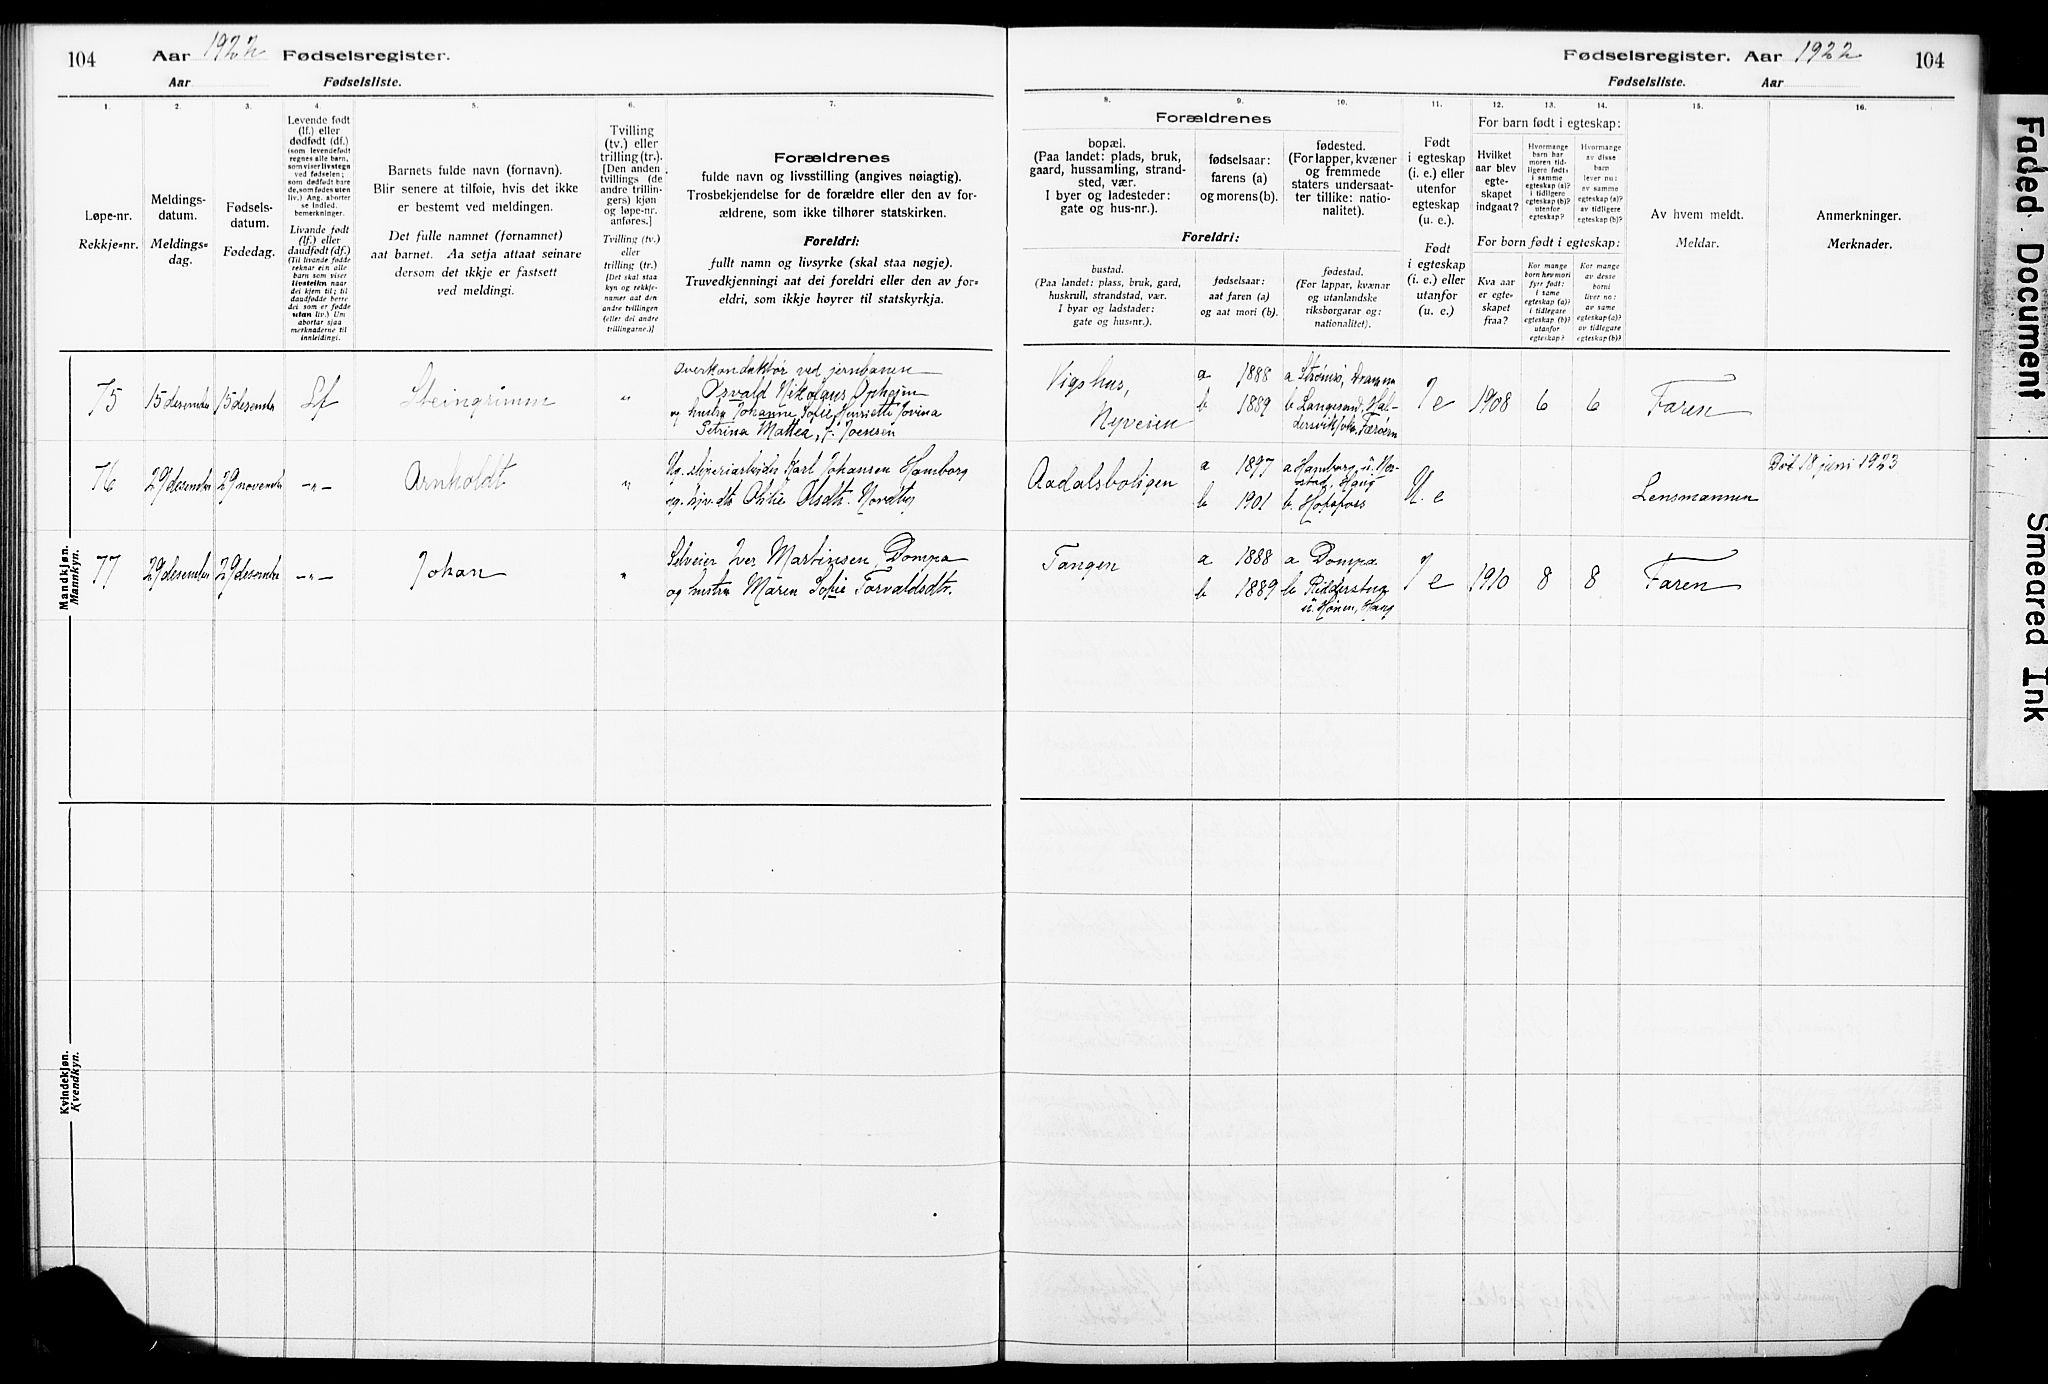 104
Aar 1922 Fødselsregister.
Aar Fødselsliste.
Fødselsregister. Aar 1922
104
Fødselsliste. Aar
1. 2. 3. 4. 5. 6. 7.
Løpe-nr.
Rekkje-nr.
Meldings-
datum.
Meldings-
dag.
Fødsels-
datum.
Fødedag.
Levende født
(lf.) eller
dødfødt (df.)
(som levendefødt
regnes alle barn,
som viser livstegn
ved fødselen;
som dødfødt bare
de, som fødes uten
liv.) Ang. aborter
se indled.
bemerkninger.
Livande født
(lf.) eller
daudfødt (df.)
(Til livande fødde
reknar ein alle
barn som viser
livsteikn naar
dei kjem til; til
daudfødde berre
dei som er fødde
utan liv.) Um
abortar sjaa
merknaderne til
innleidingi.
Barnets fulde navn (fornavn).
Blir senere at tilføie, hvis det ikke
er bestemt ved meldingen.
Det fulle namnet (fornamnet)
aat barnet. Aa setja attaat seinare
dersom det ikkje er fastsett
ved meldingi.
Tvilling
(tv.) eller
trilling (tr.).
[Den anden
tvillings (de
andre trillin-
gers) kjøn
og løpe-nr.
anføres.]
Tvilling (tv.)
eller
trilling (tr.)
[Det skal staa
kyn og rekkje-
numer aat den
andre tvillingen
(eller dei andre
trillingarne.)]
Forældrenes
fulde navn og livsstilling (angives nøiagtig).
Trosbekjendelse for de forældre eller den av for-
ældrene, som ikke tilhører statskirken.
Foreldri:
fullt namn og livsyrke (skal staa nøgje).
Truvedkjenningi aat dei foreldri eller den av for-
eldri, som ikkje høyrer til statskyrkja.
8. 9. 10. 11. 12. 13. 14. 15. 16.
Forældrenes
bopæl.
(Paa landet: plads, bruk,
gaard, hussamling, strand-
sted, vær.
I byer og ladesteder:
gate og hus-nr.).
fødselsaar:
farens (a)
og morens (b).
fødested.
(For lapper, kvæner
og fremmede
staters undersaat-
ter tillike: natio-
nalitet).
Foreldri:
bustad.
(Paa landet: plass, bruk, gard,
huskrull, strandstad, vær.
I byar og ladstader:
gate og hus-nr.).
fødselsaar:
aat faren (a)
og aat mori (b).
fødestad.
(For lappar, kvænar
og utanlandske
riksborgarar og:
nationalitet).
Født
i egteskap
(i. e.) eller
utenfor
egteskap
(u. e.).
Født
i egteskap
(i. e.) eller
utanfor
(u. e.)
For barn født i egteskap:
Hvilket
aar blev
egte-
skapet
indgaat?
Hvormange
barn har
moren tid-
ligere født:
i samme
egteskap (a)?
i tidligere
egteskap (b)?
utenfor
egteskap?
Hvormange
av disse
barn
lever nu:
av samme
egteskap (a)?
av tidligere
egteskap (b)?
For born født i egteskap:
Kva aar
er egte-
skapet
fraa?
Kor mange
born hev mori
fyrr født:
i same
egteskap (a)?
i tidlegare
egteskap (b)?
utanfor
egteskap?
Kor mange
av desse
borni
liver no:
av same
egteskap (a)?
av tidlegare
egteskap (b)?
Av hvem meldt.
Meldar.
Anmerkninger.
Merknader.
Mandkjøn.
Mannkyn.
75 15 desember 15 desember Lf Steingrimm „
overkonduktør ved jernbanen
Osvald Nikolaus Opheim
og hustru Johanne Sofie Henriette Jovina
Petrina Mattea, f. Joensen
Vigshus,
Nyveien
a 1888 a Strømsø, Drammen
b 1889 b Langesand, Hal-
dersvik, Færøern
I e 1908 6 6 Faren
76 29 desember 29 november –„– Arnholdt „
Ug. sliperiarbeider Karl Johansen Hamborg
og Othilie Olsdt. Nordby
Aadalsboligen
a 1897 a Hamborg u.
b 1901 b Hofsfoss
U. e Lensmannen
Døt 18 juni 1923
77 29 desember 29 desember –„– Johan „
Selveier Iver Martinsen, Dompa
og hustru Maren Sofie Torvaldsdtr.
Tangen
a 1888 a Dompa
b 1889 b Ridderstua
u. Hønen, Haug
I e 1910 8 8 Faren
Kvindekjøn.
Kvendkyn.
Faded Document
Smeared Ink